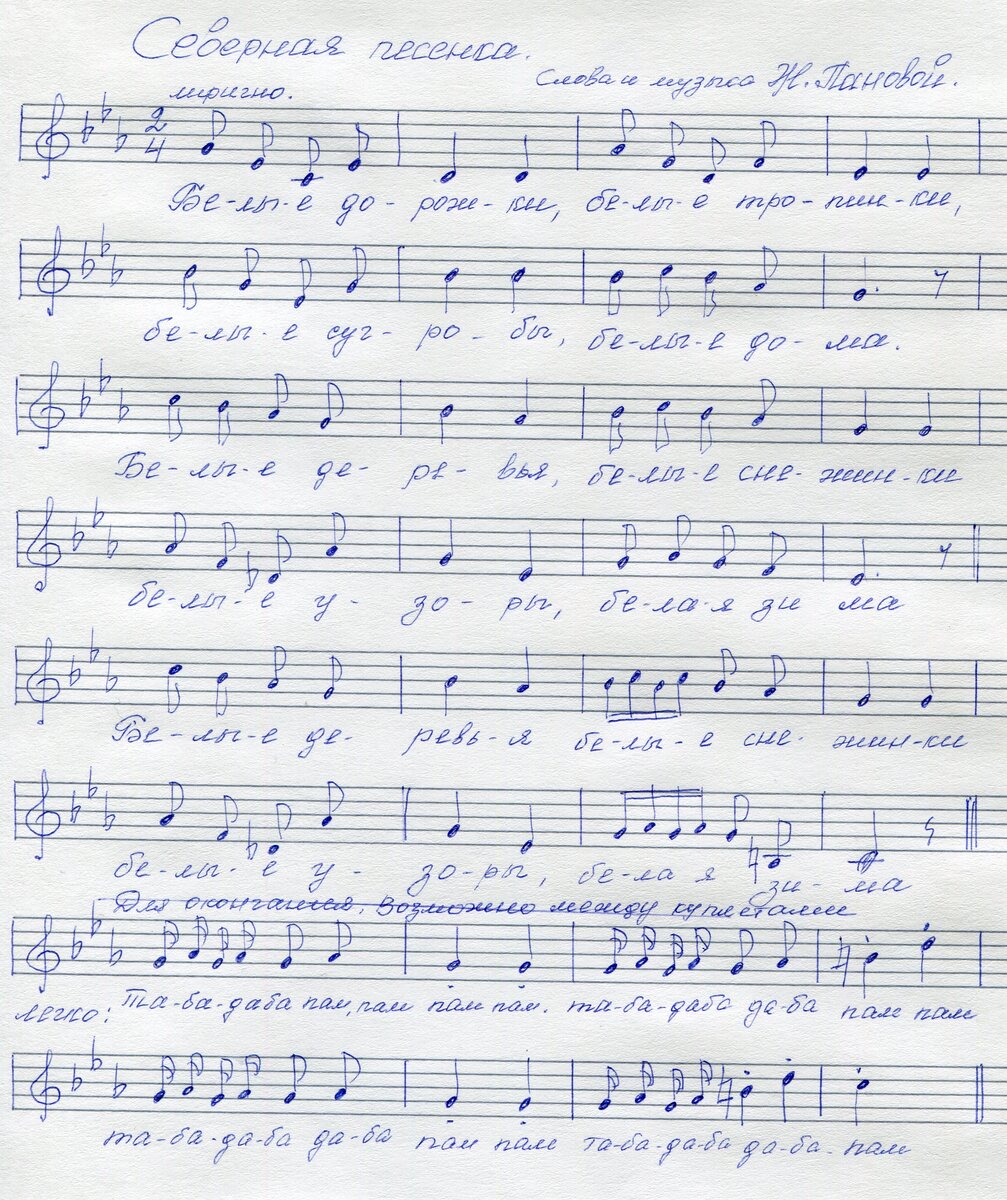 Северная песенка.
Слова и музыка Ж. Пановой.
лирично.
2
4
Бе-лы-е до-рож-ки, бе-лы-е тро-пин-ки,
бе-лы-е суг-ро-бы, бе-лы-е до-ма.
Бе-лы-е де-ре-вья, бе-лы-е сне-жин-ки
бе-лы-е у-зо-ры, бе-ла-я зи ма
Бе-лы-е де-ревь-я бе-лы-е сне-жин-ки
бе-лы-е у-зо-ры, бе-ла я зи-ма
Для окончания, возможно между куплетами
легко: Та-ба-даба пам, пам пам пам. та-ба-даба да-ба пам пам
та-ба-да-ба да-ба пам пам та-ба-да-ба да-ба-пам